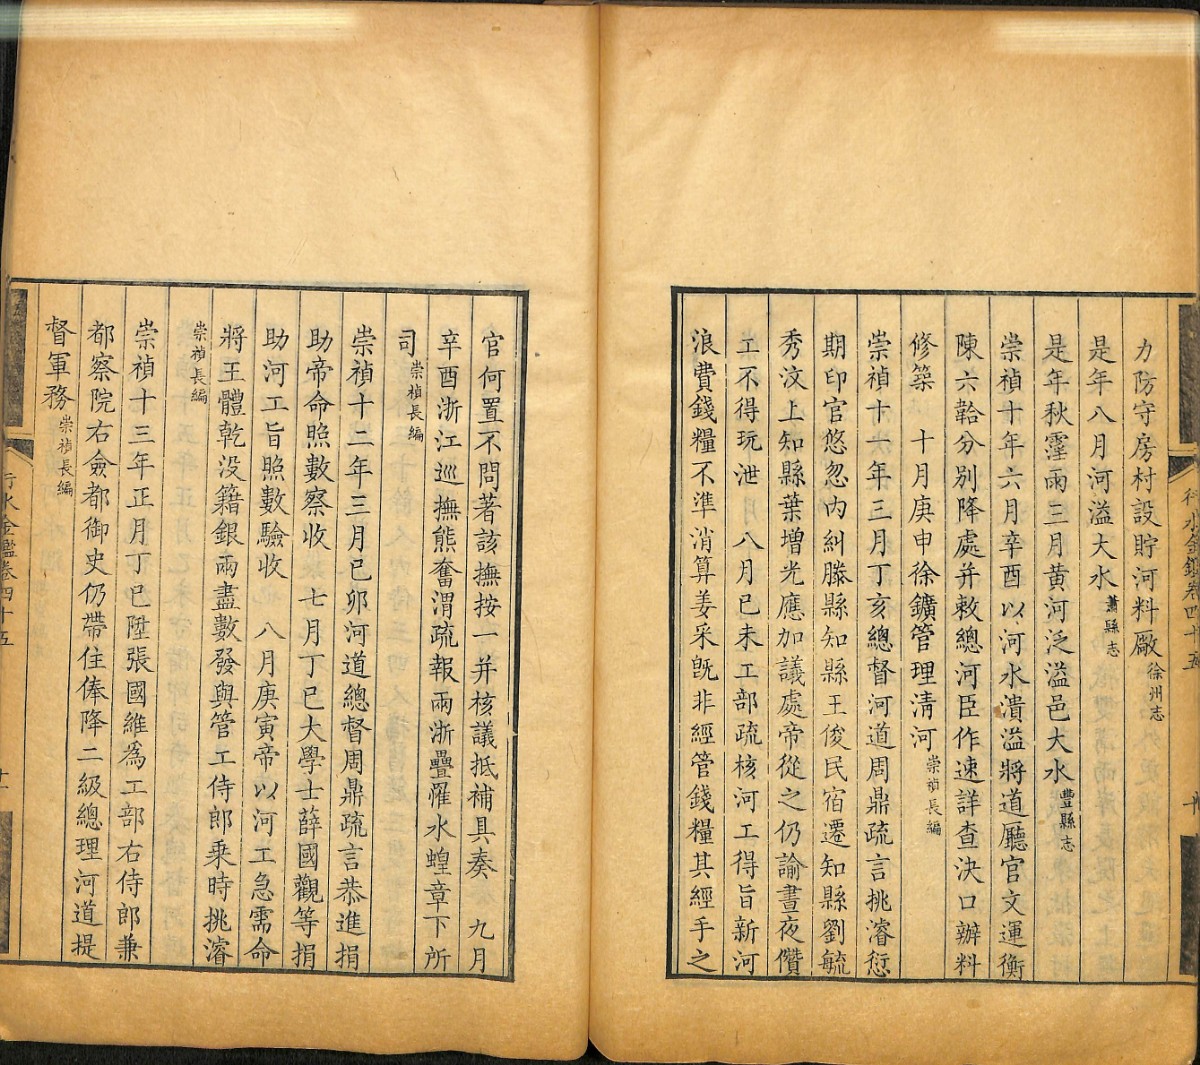 力防守房村設貯河料廠徐州志
是年八月河溢大水蕭縣志
是年秋霪雨三月黄河泛溢邑大水豐縣志
崇禎十年六月辛酉以河水潰溢將道廳官文運衡
陳六韐分別降處并敕總河臣作速詳查決口辦料
修築　十月庚申徐鑛管理淸河崇禎長編
崇禎十六年三月丁亥總督河道周鼎疏言挑濬愆
期印官悠忽內糾滕縣知縣王俊民宿遷知縣劉毓
秀汶上知縣葉增光應加議處帝從之仍諭晝夜儹
工不得玩泄　八月已未工部疏核河工得旨新河
浪費錢糧不準消算姜采旣非經管錢糧其經手之
官何置不問著該撫按一并核議抵補具奏　九月
辛酉浙江巡撫熊奮渭疏報兩浙疊罹水蝗章下所
司崇禎長編
崇禎十二年三月已卯河道總督周鼎疏言恭進捐
助帝命照數察收　七月丁巳大學士薛國觀等捐
助河工旨照數驗收　八月庚寅帝以河工急需命
將王體乾没籍銀兩盡數發與管工侍郎乘時挑濬
崇禎長編
崇禎十三年正月丁巳陞張國維為工部右侍郎兼
都察院右僉都御史仍帶住俸降二級總理河道提
督軍務崇禎長編
行水金鑑卷四十五